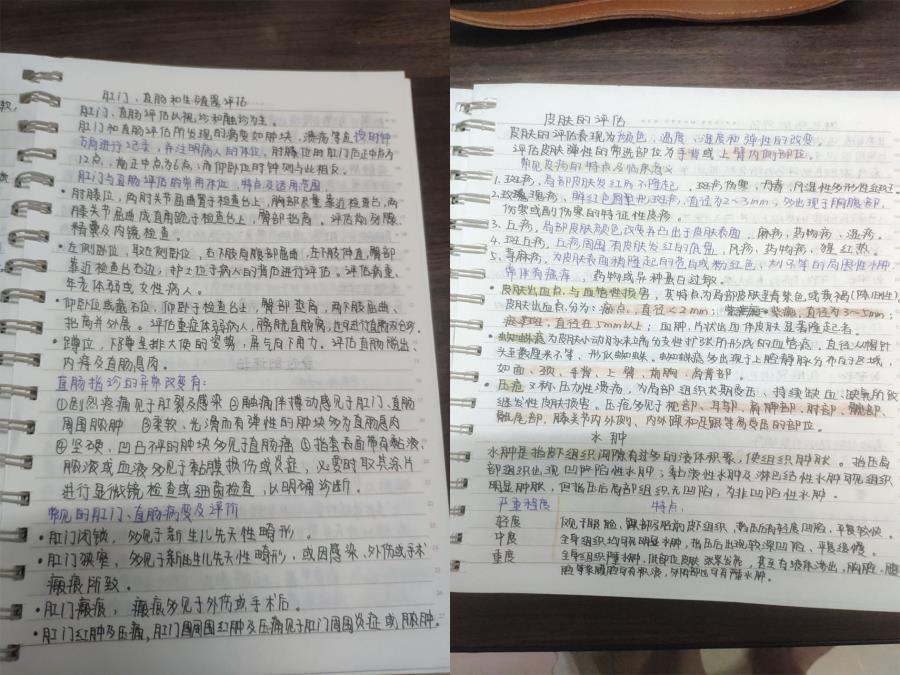 肛门、直肠和生殖器评估
肛门、直肠评估以视诊和触诊为主。
肛门和直肠评估所发现的病变如肿块、溃疡等应按时钟
方向进行记录,并注明病人的体位,肘膝位时肛门后正中点为
12点,前正中点为6点,而仰卧位的时钟则与此相反。
肛门与直肠评估的常用体位,特点及适用范围
•肘膝位,两肘关节屈曲置于检查台上,胸部尽量靠近检查台,两
膝关节屈曲成直角跪于检查台上,臀部抬高。评估前列腺、
精囊及内镜检查。
•左侧卧位,取左侧卧位,右下肢向腹部屈曲,左下肢伸直,臀部
靠近检查台右边,护士位于病人的背后进行评估。评估病重、
年老体弱或女性病人。
•仰卧位或截石位,仰卧于检查台上,臀部垫高,两下肢屈曲、
抬高并外展。评估重症体弱病人,膀胱直肠窝,也可进行直肠双合诊。
•蹲位,下蹲呈排大便的姿势,屏气向下用力。评估直肠脱出、
内痔及直肠息肉。
直肠指诊的异常改变有:
①剧烈疼痛见于肛裂及感染 ②触痛伴搏动感见于肛门、直肠
周围脓肿 ③柔软、光滑而有弹性的肿块多为直肠息肉
④坚硬、凹凸不平的肿块多见于直肠癌 ⑤指套表面带有黏液、
脓液或血液多见于黏膜损伤或炎症,必要时取其涂片
进行显微镜检查或细菌检查,以明确诊断。
常见的肛门、直肠病变及评价
•肛门闭锁,多见于新生儿先天性畸形。
•肛门狭窄,多见于新生儿先天性畸形,或因感染、外伤或手术
瘢痕所致。
•肛门瘢痕,瘢痕多见于外伤或手术后。
•肛门红肿及压痛,肛门周围红肿及压痛见于肛门周围炎症或脓肿。
皮肤的评估
皮肤的评估表现为颜色、温度、湿度和弹性的改变。
评估皮肤弹性的常选部位为手背或上臂内侧部位。
常见皮疹的特点及临床意义
1.斑疹,局部皮肤发红而不隆起。斑疹伤寒、丹毒、风湿性多形性红斑。
2.玫瑰疹,鲜红色圆形斑疹,直径为2~3mm,多出现于胸腹部,
伤寒或副伤寒的特征性皮疹。
3.丘疹,局部皮肤颜色改变并凸出于皮肤表面。麻疹、药物疹、湿疹。
4.斑丘疹,丘疹周围有皮肤发红的底盘。风疹、药物疹、猩红热。
5.荨麻疹,为皮肤表面稍隆起的苍白或粉红色、大小不等的局限性水肿,
常伴有瘙痒。药物或异种蛋白过敏。
•皮肤出血点与血管性损害,其特点为局部皮肤呈青紫色或黄褐(陈旧性),
皮肤出血点分为:瘀点,直径<2mm;紫癜,直径为3~5mm;
瘀斑,直径在5mm以上;血肿,片状出血伴皮肤显著隆起者。
•蜘蛛痣为皮肤小动脉末端分支性扩张所形成的血管痣。直径从帽针
头至数厘米不等,形似蜘蛛。蜘蛛痣多出现于上腔静脉分布的区域,
如面、颈、手背、上臂、前胸、肩背部。
•压疮又称压力性溃疡,为局部组织长期受压、持续缺血、缺氧所致
继发性皮肤损害。压疮多见于枕部、耳部、肩胛部、肘部、髋部、
骶尾部,膝关节内外侧、内外踝和足跟等易受压的部位。
水 肿
水肿是指皮下组织间隙有过多的液体积聚,使组织肿胀。指压局
部组织出现凹陷为凹陷性水肿;黏液性水肿及淋巴结性水肿可见组织
明显肿胀,但指压后局部组织无凹陷,为非凹陷性水肿。
严重程度 特点
轻度 仅见于眼睑、踝部及胫前皮下组织,指压后有轻度凹陷,平复较快。
中度 全身组织均可见明显水肿,指压后出现较深凹陷、平复缓慢。
重度 全身组织严重水肿,低部位皮肤